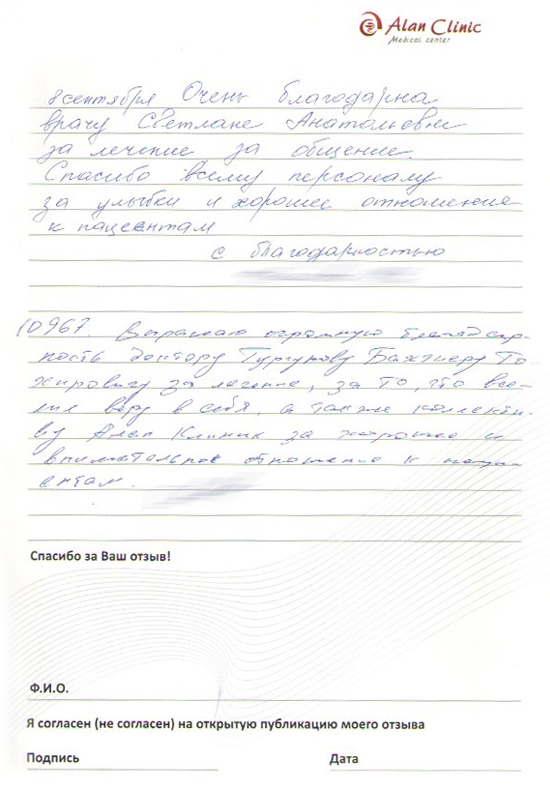 Alan Clinic
Medical center
8 сентября Очень благодарна
врачу Светлане Анатольевне
за лечение за общение.
Спасибо всему персоналу
за улыбки и хорошее отношение
к пациентам
с благодарностью
10967 Выражаю огромную благодар-
ность доктору Тургунову Бахтиеру То-
жировичу за лечение, за то, что все-
лил веру в себя, а также коллекти-
ву Алан Клиник за хорошее и
внимательное отношение к паци-
ентам.
Спасибо за Ваш отзыв!
Ф.И.О.
Я согласен (не согласен) на открытую публикацию моего отзыва
Подпись Дата